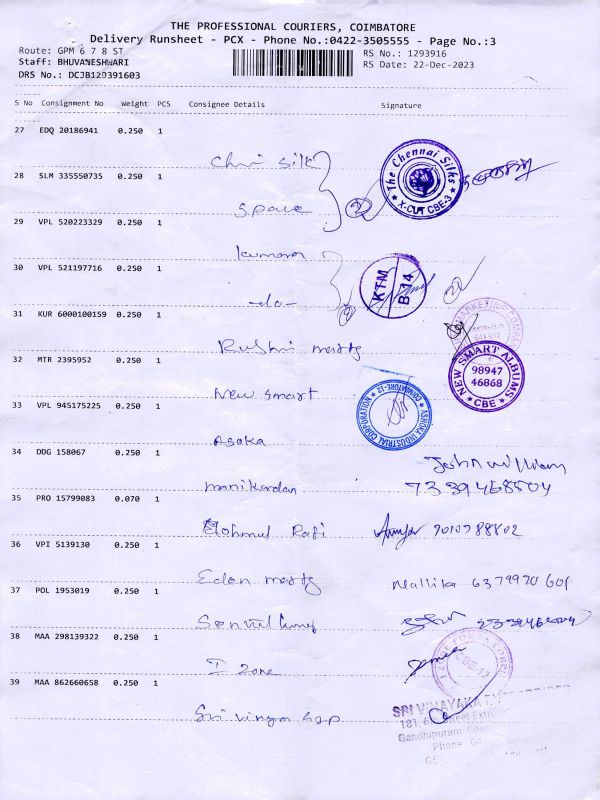 THE PROFESSIONAL COURIERS, COIMBATORE
Delivery Runsheet - PCX - Phone No.:0422-3505555 - Page No.:3
Route: GPM 6 7 8 ST
RS No.: 1293916
Staff: BHUVANESHWARI
RS Date: 22-Dec-2023
DRS No.: DCJB129391603
S No Consignment No Weight PCS Consignee Details Signature
27 EDQ 20186941 0.250 1
The Chennai Silks
X-CUT CBE-3
28 SLM 335550735 0.250 1
space
29 VPL 520223329 0.250 1
kumaran
30 VPL 521197716 0.250 1
KTM
B-14
-do-
31 KUR 6000100159 0.250 1
32 MTR 2395952 0.250 1
NEW SMART ALBUMS
98947
46868
CBE
New Smart
33 VPL 945175225 0.250 1
ASHOKA INDUSTRIAL CORPORATION
COIMBATORE-12
Asoka
34 DDG 158067 0.250 1
John william
manikandan 7339468504
35 PRO 15799083 0.070 1
Rafi 9010788802
36 VPI 5139130 0.250 1
Eden Mallika 6379970601
37 POL 1953019 0.250 1
38 MAA 298139322 0.250 1
CBE-12
I zone
39 MAA 862660658 0.250 1
SRI VINAYAKA
Gandhipuram
Phone
Sri